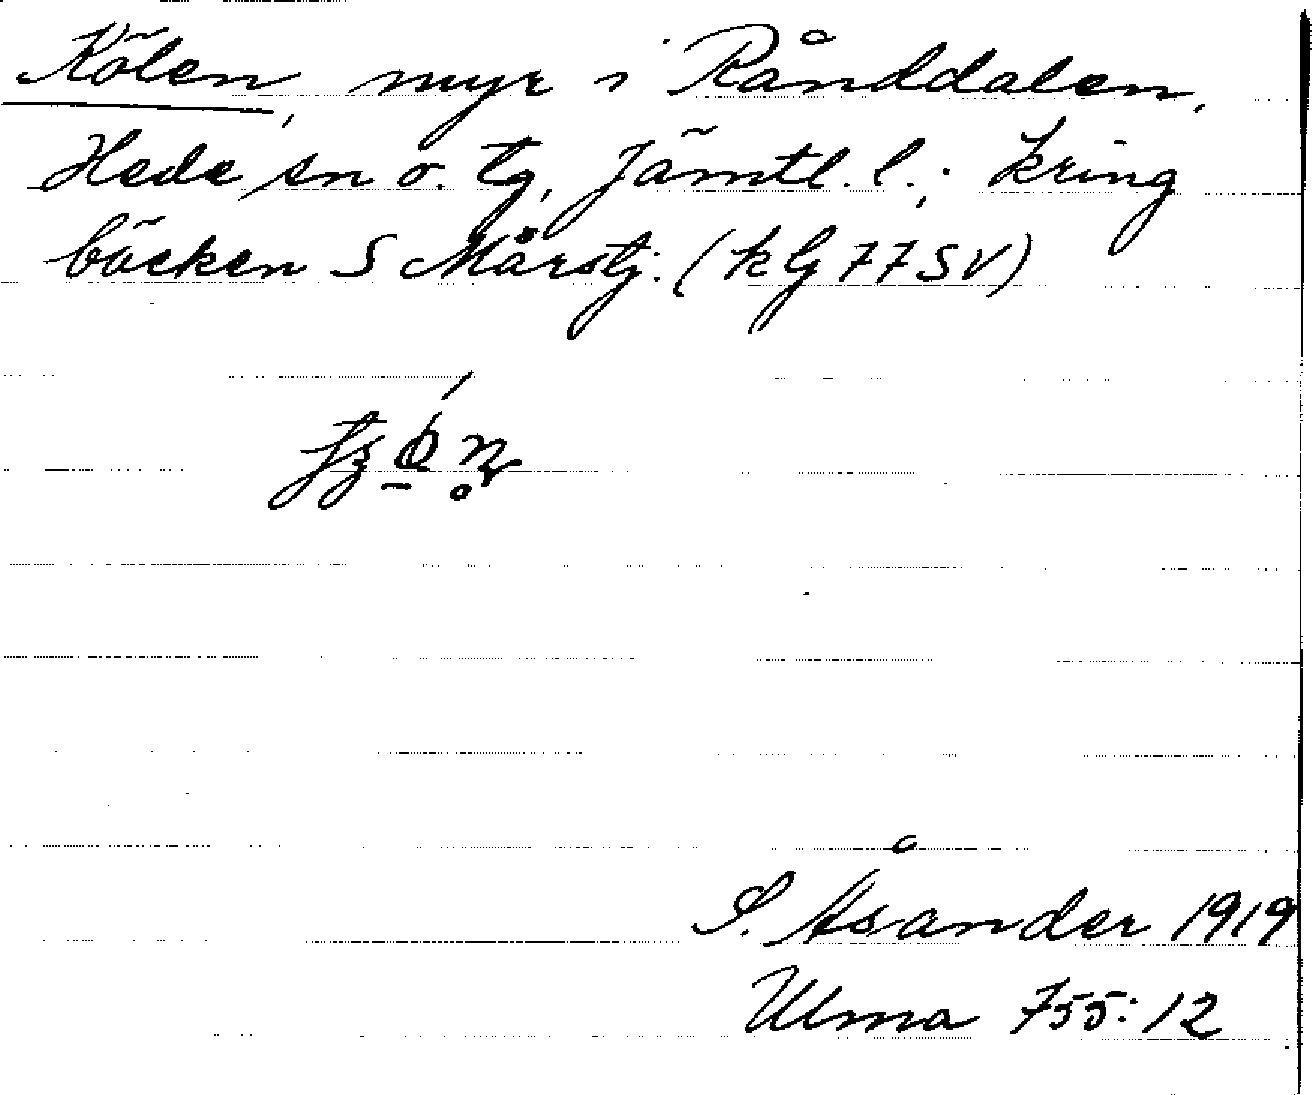 Kölen, myr i Rånddalen,
Hede sn o. tg, Jämtl. l.; kring
bäcken S Mårstj. (kG77SV)
S. Åsander 1919
Ulma 755:12